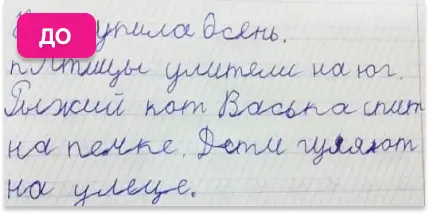 ДО
упила осень.
пАтицы улители на юг.
Рыжий кот Васька спит
на печке. Дети гуляют
на улеце.